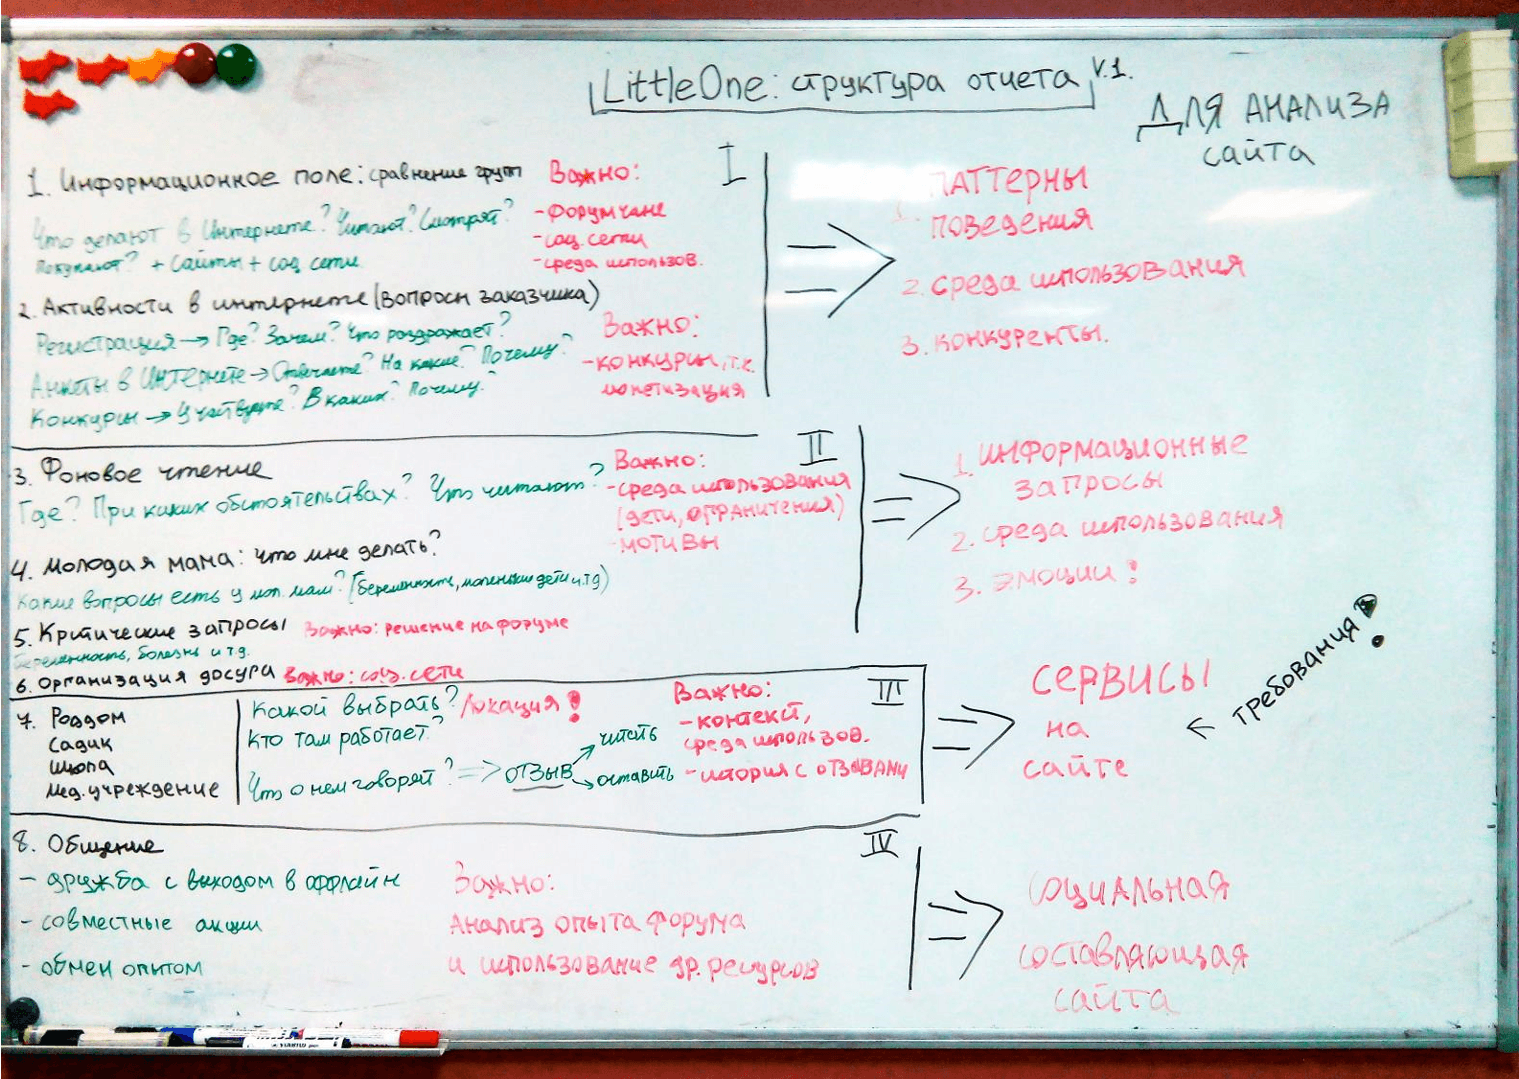 LittleOne: структура отчета v.1.
ДЛЯ АНАЛИЗА
сайта
I
1. Информационное поле: сравнение групп
Что делают в Интернете? Читают? Смотрят?
Покупают? + Сайты + соц. сети
Важно:
- Форумчане
- соц. сети
- среда использов.
2. Активности в интернете (вопросы заказчика)
Регистрация → Где? Зачем? Что раздражает?
Анкеты в Интернете → Отвечаете? На какие? Почему?
Конкурсы → Участвуете? В каких? Почему?
Важно:
- конкурсы, т.к.
монетизация
⇒
1. ПАТТЕРНЫ
поведения
2. среда использования
3. конкуренты.
II
3. Фоновое чтение
Где? При каких обстоятельствах? Что читают?
Важно:
- среда использования
(дети, ограничения)
- мотивы
4. Молодая мама: что мне делать?
Какие вопросы есть у мол. мам? (Беременность, маленькие дети и т.д)
5. Критические запросы Важно: решение на форуме
Беременность, болезнь и т.д.
6. Организация досуга Важно: соц. сети
⇒
1. ИНФОРМАЦИОННЫЕ
запросы
2. среда использования
3. эмоции!
III
7. Роддом
Садик
Школа
Мед. учреждение
Какой выбрать? Локация!
Кто там работает?
Что о нем говорят? ⇒ ОТЗЫВ
→ читать
→ оставить
Важно:
- контекст,
среда использов.
- история с отзывами
⇒
СЕРВИСЫ
на
сайте
← требования!
IV
8. Общение
- дружба с выходом в оффлайн
- совместные акции
- обмен опытом
Важно:
Анализ опыта форума
и использование др. ресурсов
⇒
СОЦИАЛЬНАЯ
составляющая
сайта